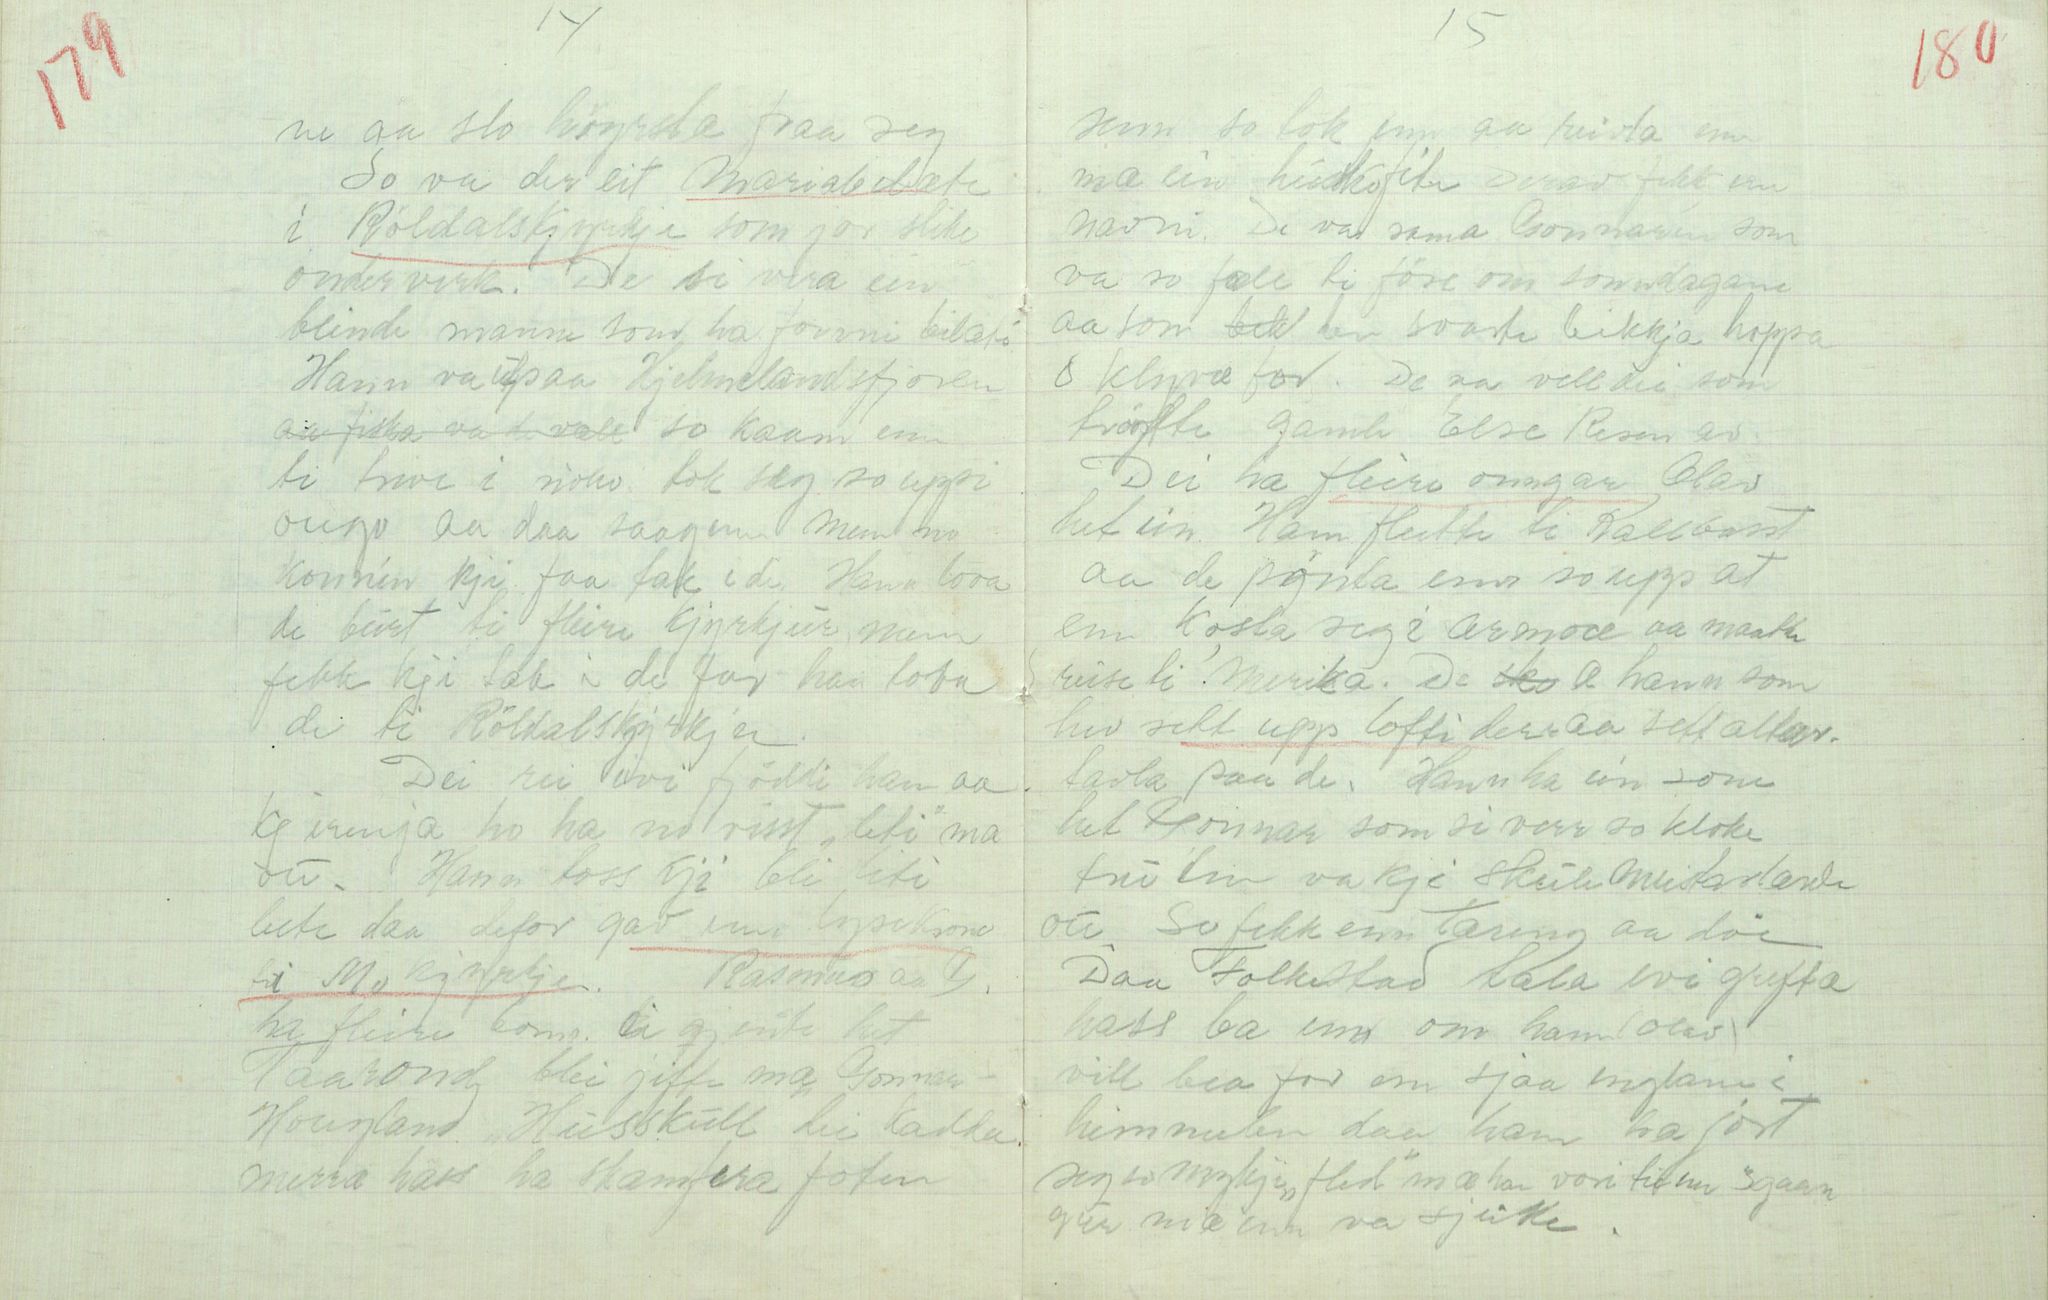 179
14
ne aa slo höyrsla fraa seg
So va der eit Mariabelæte
i Röldalskjyrkje som jor slike
onderverk. De si vera ein
blinde mann som ha fonne bilæti
Hann va upaa Hjelmelandsfjoren
aa fiska va de vall so kaam enn
ti trive i noko tok seg so uppi
ougo aa daa saag enn Menn no
konn'en kji faa tak i de. Hann lova
de burt ti fleire kjyrkjur menn
fekk kji tak i de før han lova
de ti Röldalskjyrkje.
Dei rei ivi fjödli han aa
kjeringa ho ha no visst "leti" ma
ou. Hann toss kji bli liti
bete daa defor gav enn lysekrone
ti Mo kjyrkje. Rasmus aa G.
ha fleire born. Ei gjente het
Taarond, blei jifte mæ Gonnar
Hougland. "Husskull" dei kadla
merra hass ha skamfera foten
180
15
senn so tok enn aa reivla enn
mæ ein hudkofite Derav fekk enn
navni. De va sama Gonnaren som
va so fæle ti före om sonndagane
aa som ein svarte bikkja hoppa
o klyvæ for. De va vell dei som
trøfte gamle Else Resen av.
Dei ha fleire oungar Olav
het ein. Hann flutte ti Kallbarst
aa de pynta enn so upp at
enn kosta seg i armoe aa maatte
reise ti Merika. De sko a hann som
hev sett upp lofti der aa sett altar-
tavla paa de. Hann ha ein sone
het Gonnar som si verr so kloke
truin va kji skulemeistarlærde
ou. So fekk enn tæring aa döe
Daa Folkestad tala ivi grefta
hass ba enn om hann (Olav)
vill bea for enn sjaa englane i
himmelen daa hann ha jort
seg so mykje "flid" mæ han vori ti enn "sgaan
gur mæ enn va sjuke.